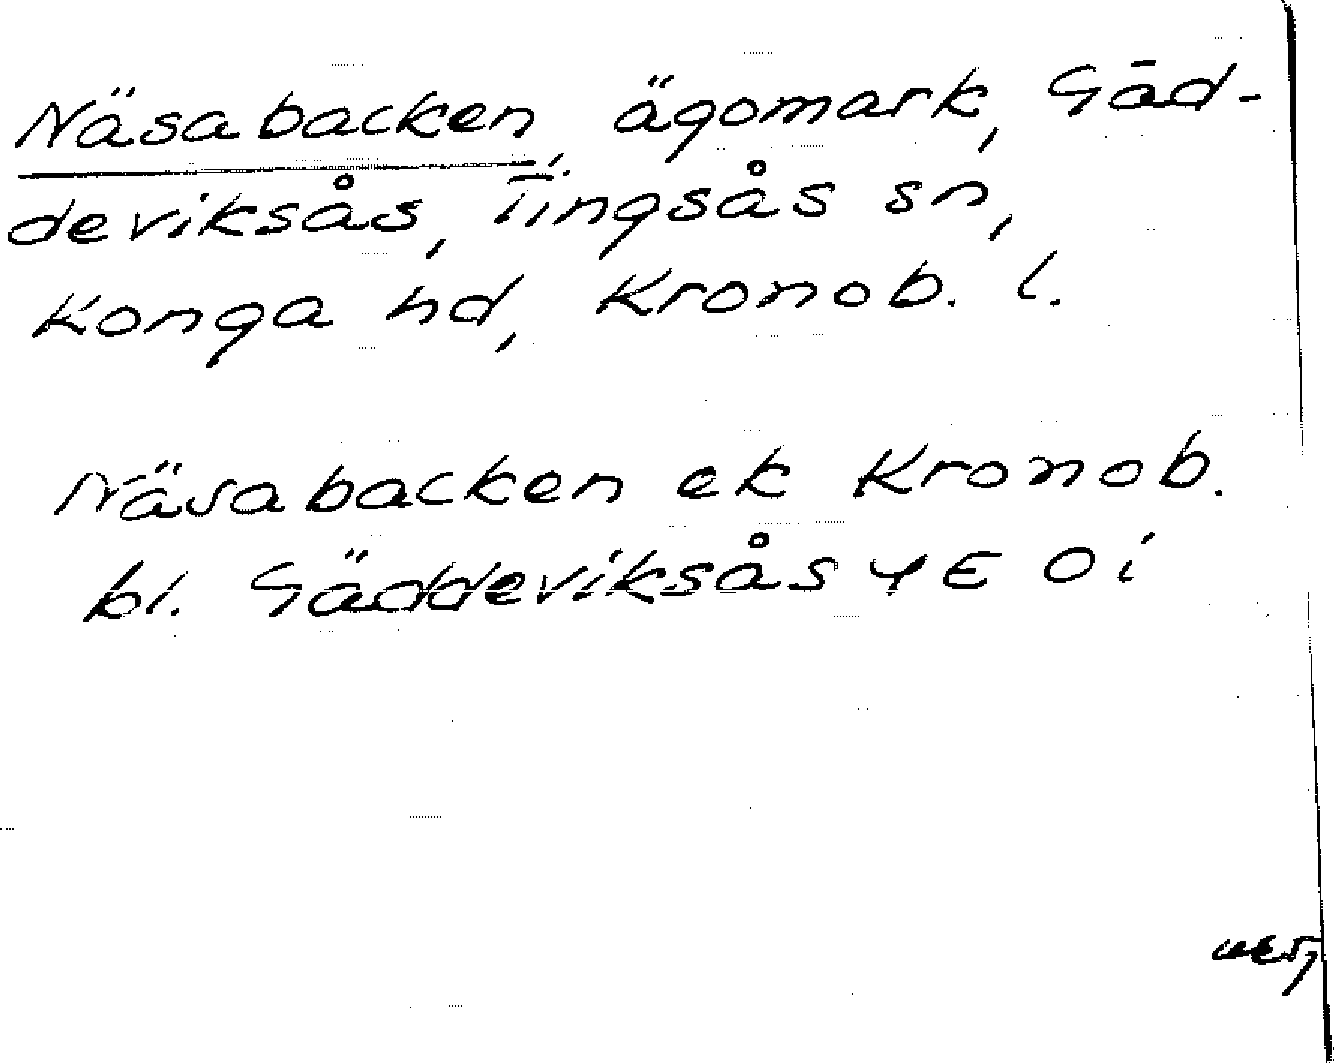 Näsabacken, ägomark, Gäd-
deviksås, Tingsås sn,
Konga hd, Kronob. l.
Näsabacken ek Kronob.
bl. Gäddeviksås 4E 0i